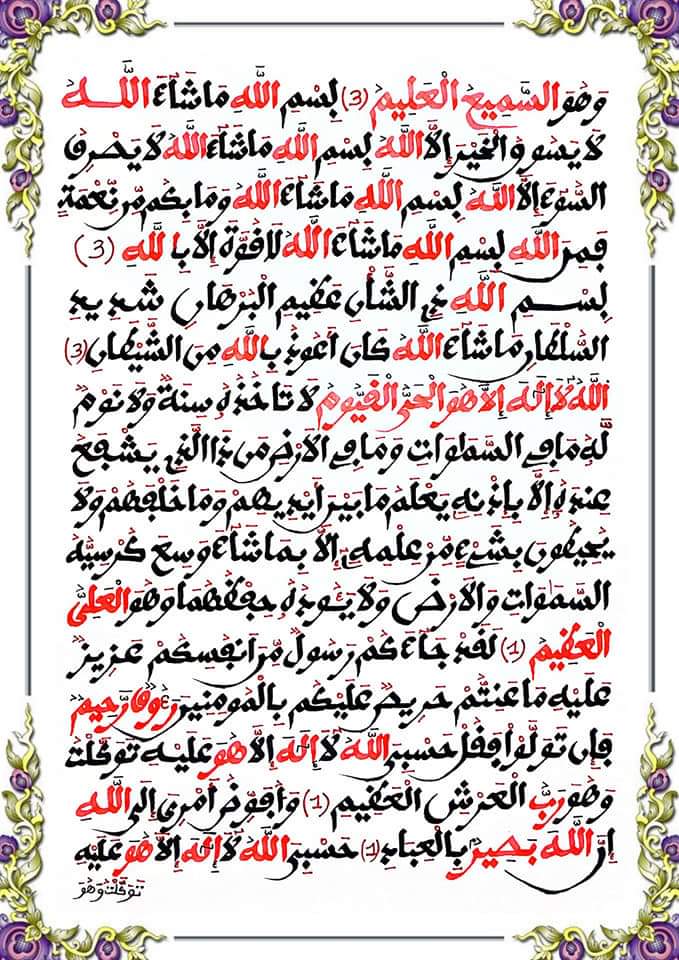 وَهُوَ السَّمِيعُ الْعَلِيمُ (3) بِسْمِ اللَّهِ مَا شَآءَ اللَّهُ
لَا يَسُوقُ الْخَيْرَ إِلَّا اللَّهُ بِسْمِ اللَّهِ مَا شَآءَ اللَّهُ لَا يَصْرِفُ
السُّوءَ إِلَّا اللَّهُ بِسْمِ اللَّهِ مَا شَآءَ اللَّهُ وَمَا بِكُم مِّن نِّعْمَةٍ
فَمِنَ اللَّهِ بِسْمِ اللَّهِ مَا شَآءَ اللَّهُ لَا قُوَّةَ إِلَّا بِاللَّهِ (3)
بِسْمِ اللَّهِ ذِي الشَّأْنِ عَظِيمِ الْبُرْهَانِ شَدِيدِ
السُّلْطَانِ مَا شَآءَ اللَّهُ كَانَ أَعُوذُ بِاللَّهِ مِنَ الشَّيْطَانِ (3)
اللَّهُ لَآ إِلَٰهَ إِلَّا هُوَ الْحَيُّ الْقَيُّومُ لَا تَاخُذُهُ سِنَةٌ وَلَا نَوْمٌ
لَّهُ مَا فِي السَّمَاوَاتِ وَمَا فِي الْأَرْضِ مَن ذَا الَّذِي يَشْفَعُ
عِندَهُ إِلَّا بِإِذْنِهِ يَعْلَمُ مَا بَيْنَ أَيْدِيهِمْ وَمَا خَلْفَهُمْ وَلَا
يُحِيطُونَ بِشَيْءٍ مِّنْ عِلْمِهِ إِلَّا بِمَا شَآءَ وَسِعَ كُرْسِيُّهُ
السَّمَاوَاتِ وَالْأَرْضَ وَلَا يَئُودُهُ حِفْظُهُمَا وَهُوَ الْعَلِيُّ
الْعَظِيمُ (1) لَقَدْ جَآءَكُمْ رَسُولٌ مِّنْ أَنفُسِكُمْ عَزِيزٌ
عَلَيْهِ مَا عَنِتُّمْ حَرِيصٌ عَلَيْكُم بِالْمُومِنِينَ رَءُوفٌ رَّحِيمٌ
فَإِن تَوَلَّوْا فَقُلْ حَسْبِيَ اللَّهُ لَآ إِلَٰهَ إِلَّا هُوَ عَلَيْهِ تَوَكَّلْتُ
وَهُوَ رَبُّ الْعَرْشِ الْعَظِيمِ (1) وَأُفَوِّضُ أَمْرِي إِلَى اللَّهِ
إِنَّ اللَّهَ بَصِيرٌ بِالْعِبَادِ (1) حَسْبِيَ اللَّهُ لَآ إِلَٰهَ إِلَّا هُوَ عَلَيْهِ
تَوَكَّلْتُ وَهُوَ